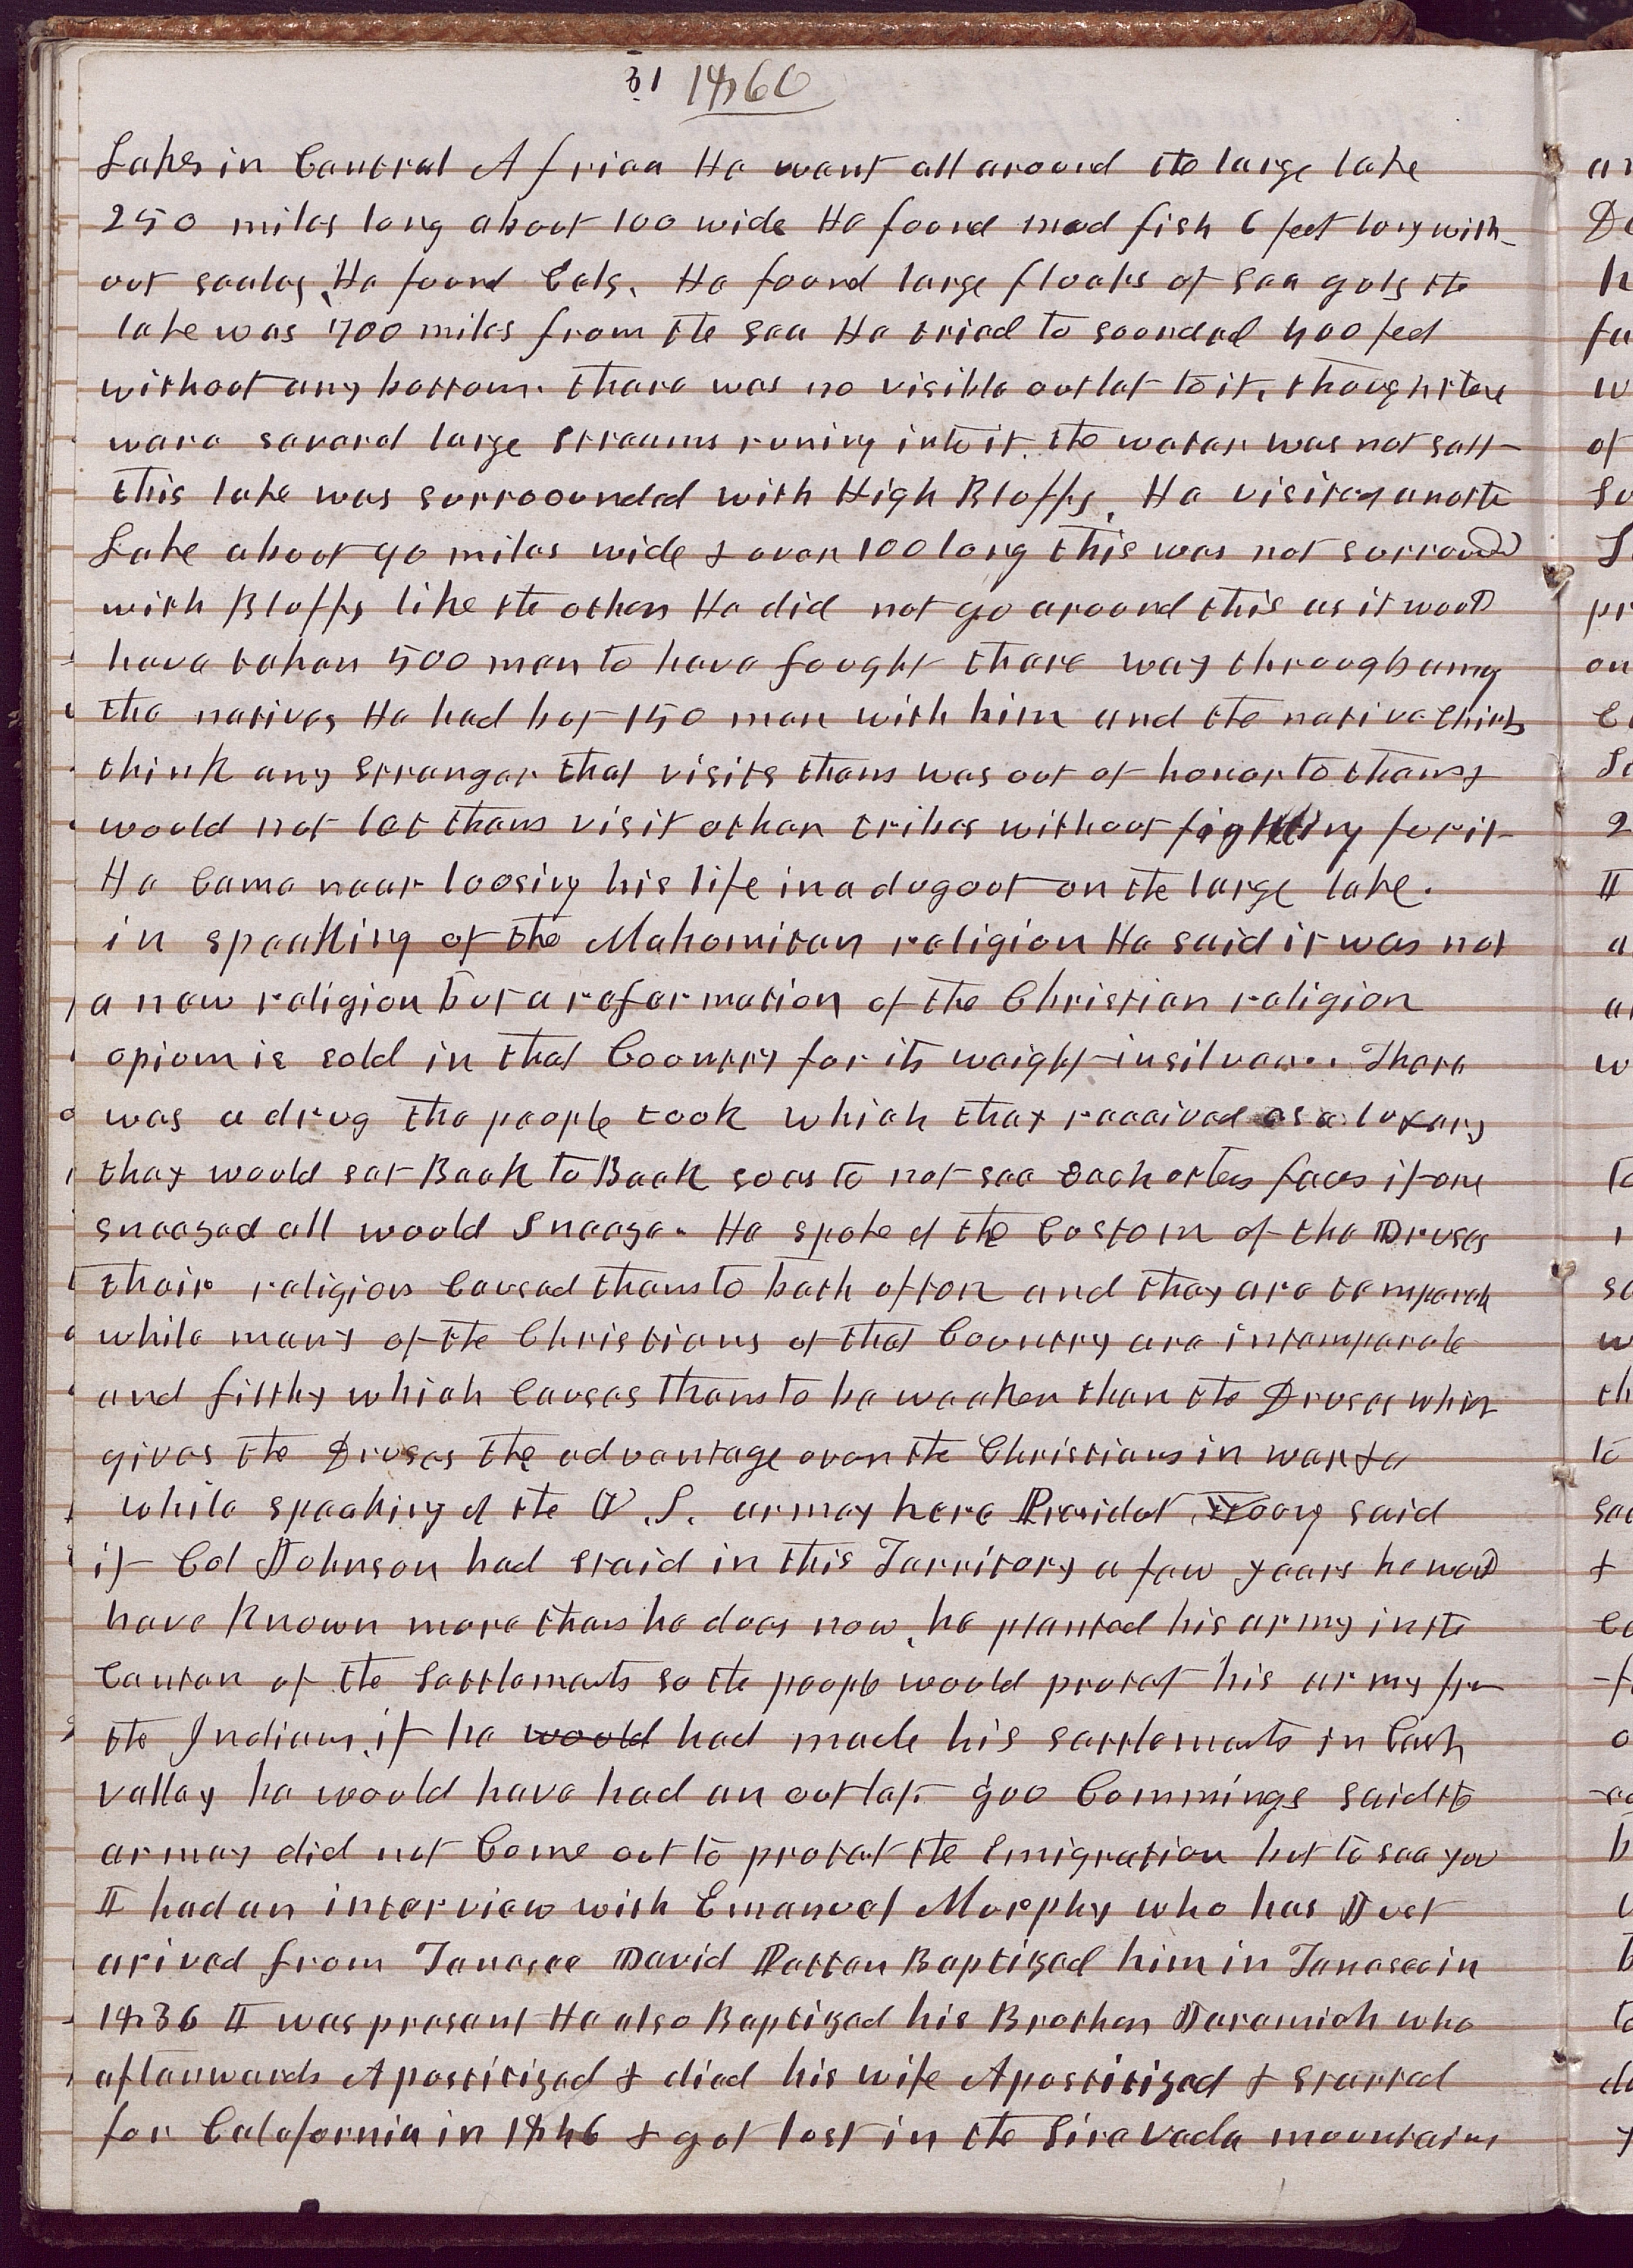 31 1860
Lakes in Central Africa He went all around the large lake
250 miles long about 100 wide He found mud fish 6 feet long with-
out scales, He found Eels. He found large flocks of sea guls the
lake was 700 miles from the sea He tried to sounded 400 feet
without any bottom. there was no visible outlet to it, though there
were several large streams runing into it. the water was not salt
this lake was surroounded with High Bluffs, He visited another
Lake about 90 miles wide & over 100 long this was not surround
with Bluffs like the other He did not go around this as it would
have taken 500 men to have fought there way through amg
the natives He had but 150 men with him and the native Chiefs
think any stranger that visits them was out of honor to them &
would not let them visit other tribes without fighting for it
He Came near loosing his life in a dugout on the large lake.
in speaking of the Mahomitan religion He said it was not
a new religion but a reformation of the Christian religion
opium is sold in that Country for its weight in silver. There
was a drug the people took which they received as a luxery
they would set Back to Back so as to not see each others faces if one
sneezed all would Sneeze. He spoke of the Custom of the Druses
their religion Caused them to bath often and they are temperate
while many of the Christians of that Country are intemperate
and filthy which Causes them to be weaker than the Druses which
gives the Druses the advantage over the Christians in war &c
while speaking of the U.S. army here President Young said
if Col Johnson had staid in this Territory a few years he would
have Known more than he does now, he planted his army in the
Center of the Settlements so the people would protect his army from
the Indians, if he would had made his settlements in Cash
valley he would have had an outlet. gov Cummings said the
armey did not Come out to protect the Emigration but to see you
I had an interview with Emanuel Murphy who has Just
arived from Tenesee David Patten Baptized him in Tenesee in
1836 I was present He also Baptized his Brother Jeremiah who
afterwards Apostitized & died his wife Apostitized & started
for Calefornia in 1846 & got lost in the Siravada mountains